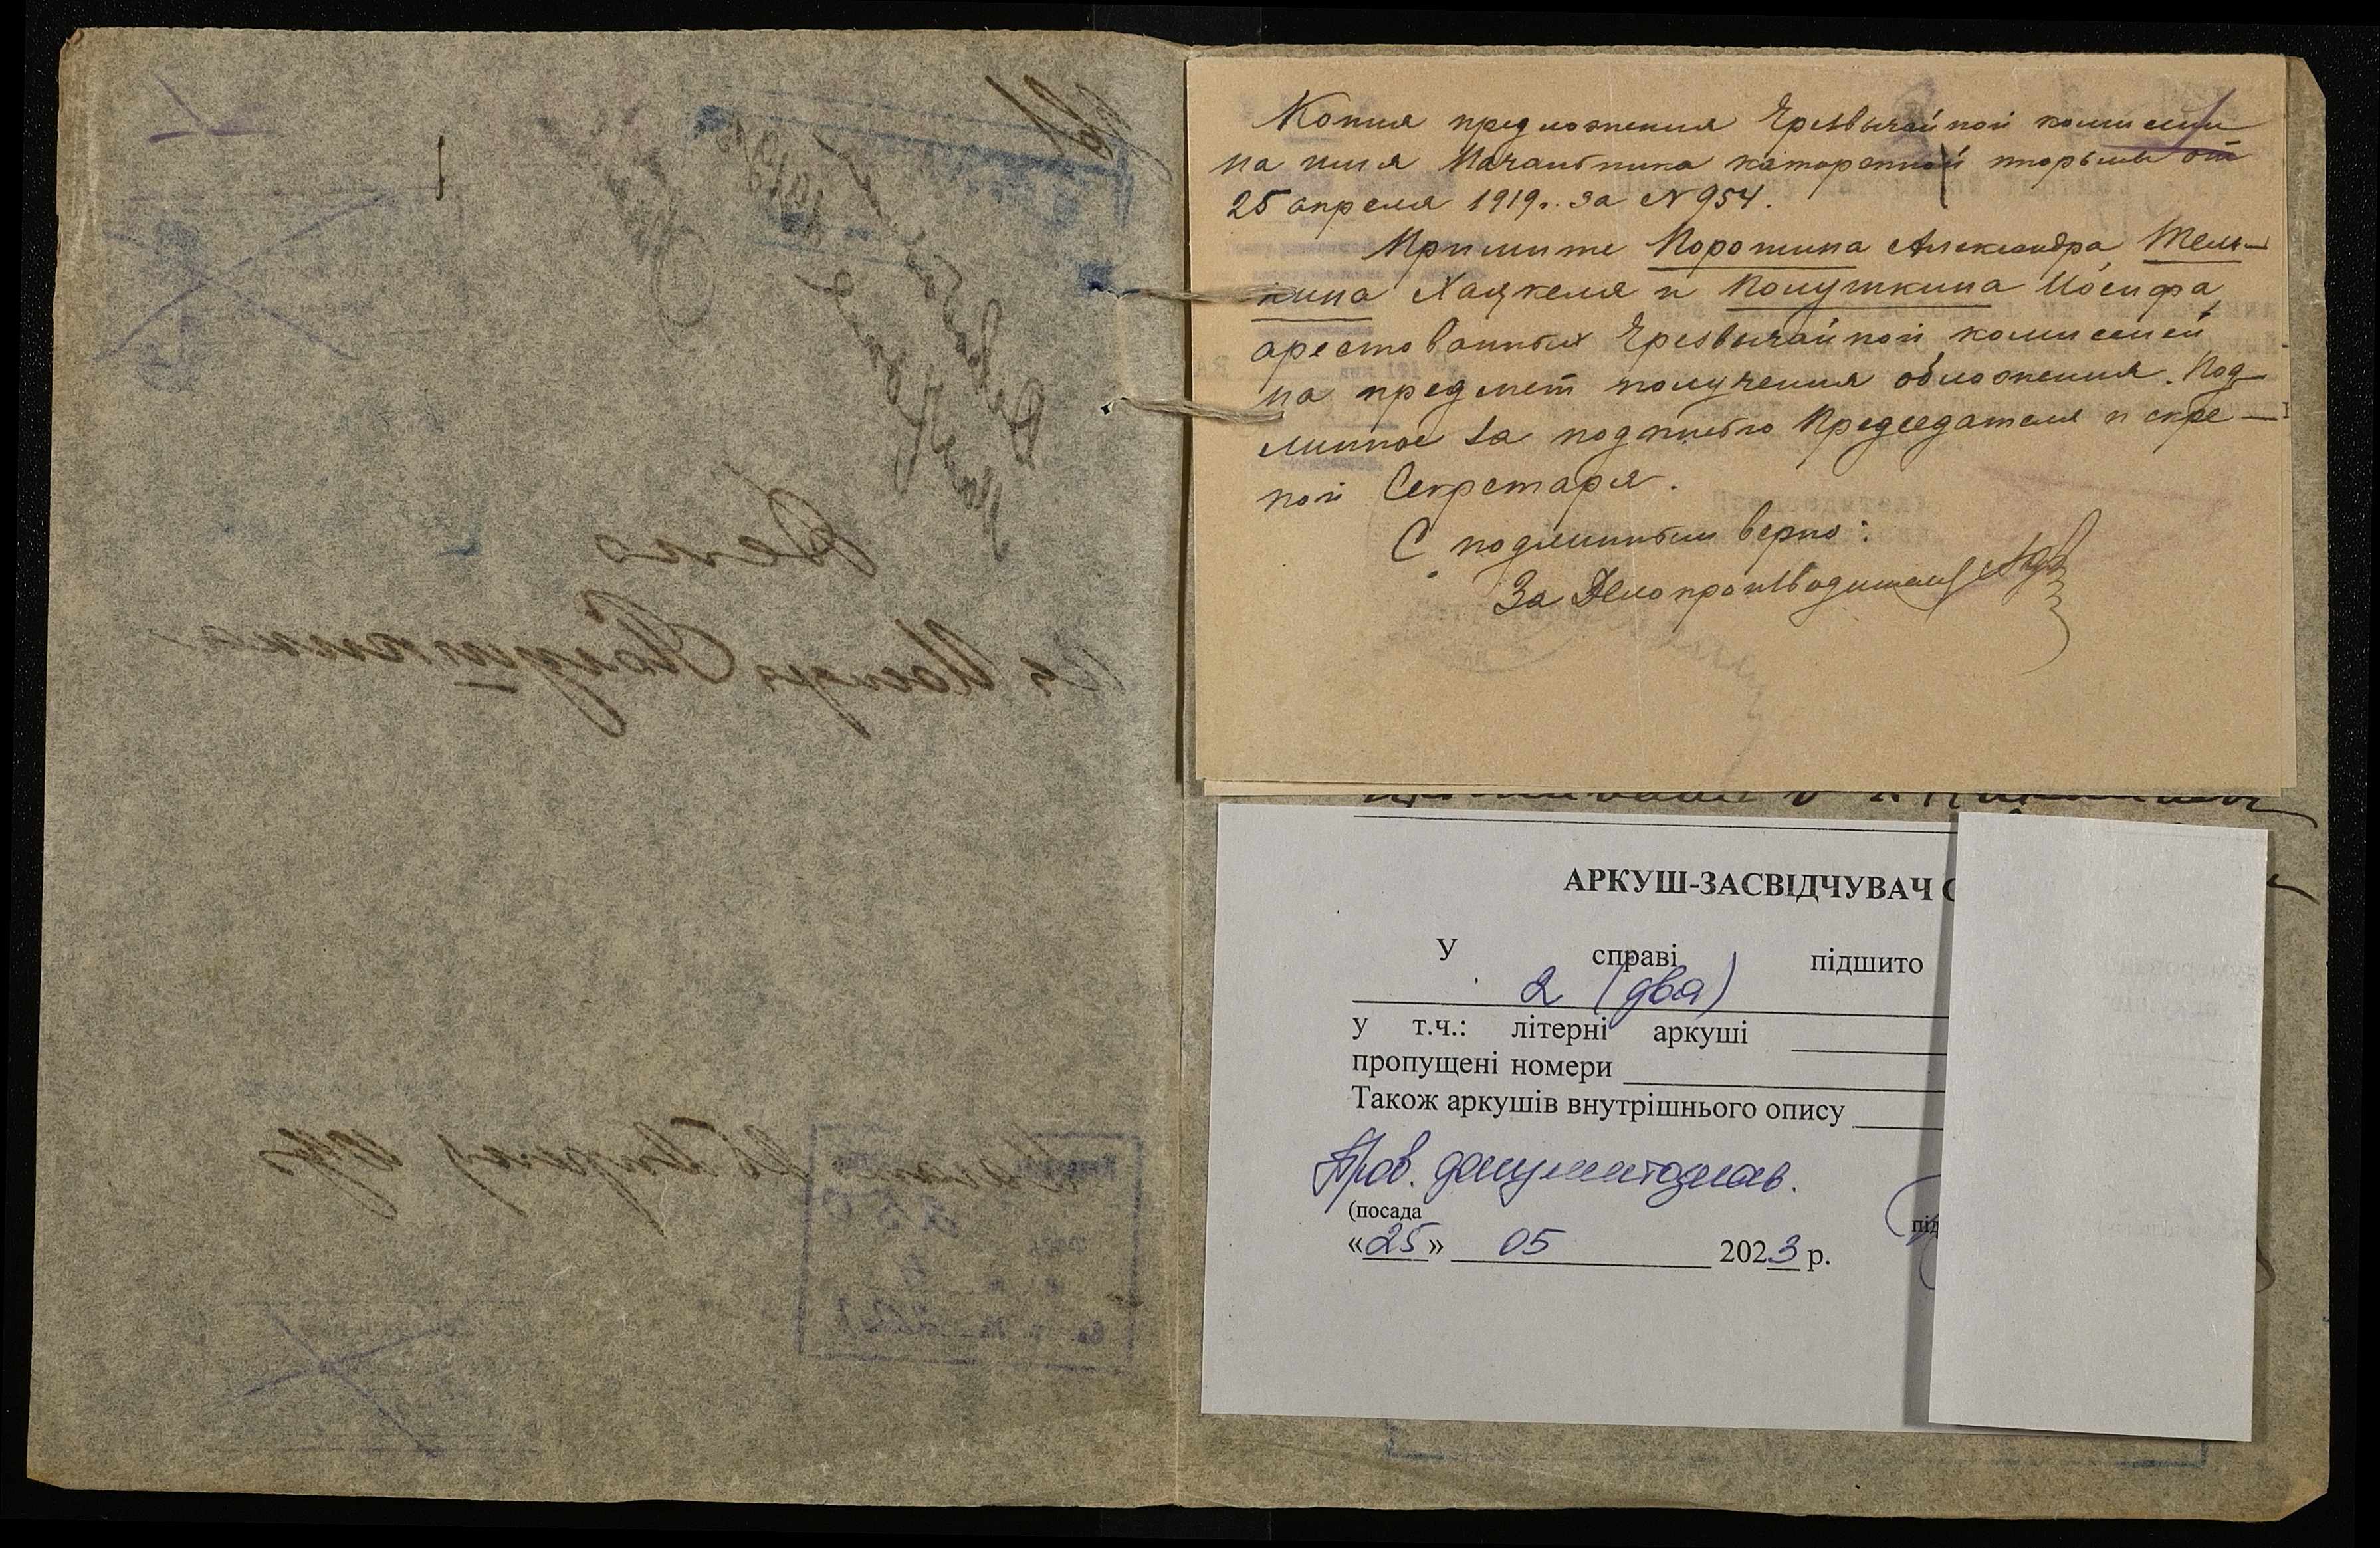 Дело
Иосифа Полушкина
25 Апреля
1
Копия предложения Чрезвычайной комиссии
на имя Начальника каторжной тюрьмы от
25 апреля 1919 г. за N 954.
Примите Порошина Александра, Мель-
кина Хацкеля и Полушкина Иосифа,
арестованных Чрезвычайной комиссией
на предмет получения обложения. Под-
линное за подписью Председателя и скре-
пой Секретаря.
С подлинным верно:
За Делопроизводителя
АРКУШ-ЗАСВІДЧУВАЧ С
У справі підшито
2 (два)
у т.ч.: літерні аркуші
пропущені номери
Також аркушів внутрішнього опису
Пров. документознав.
(посада під
«25» 05 2023 р.